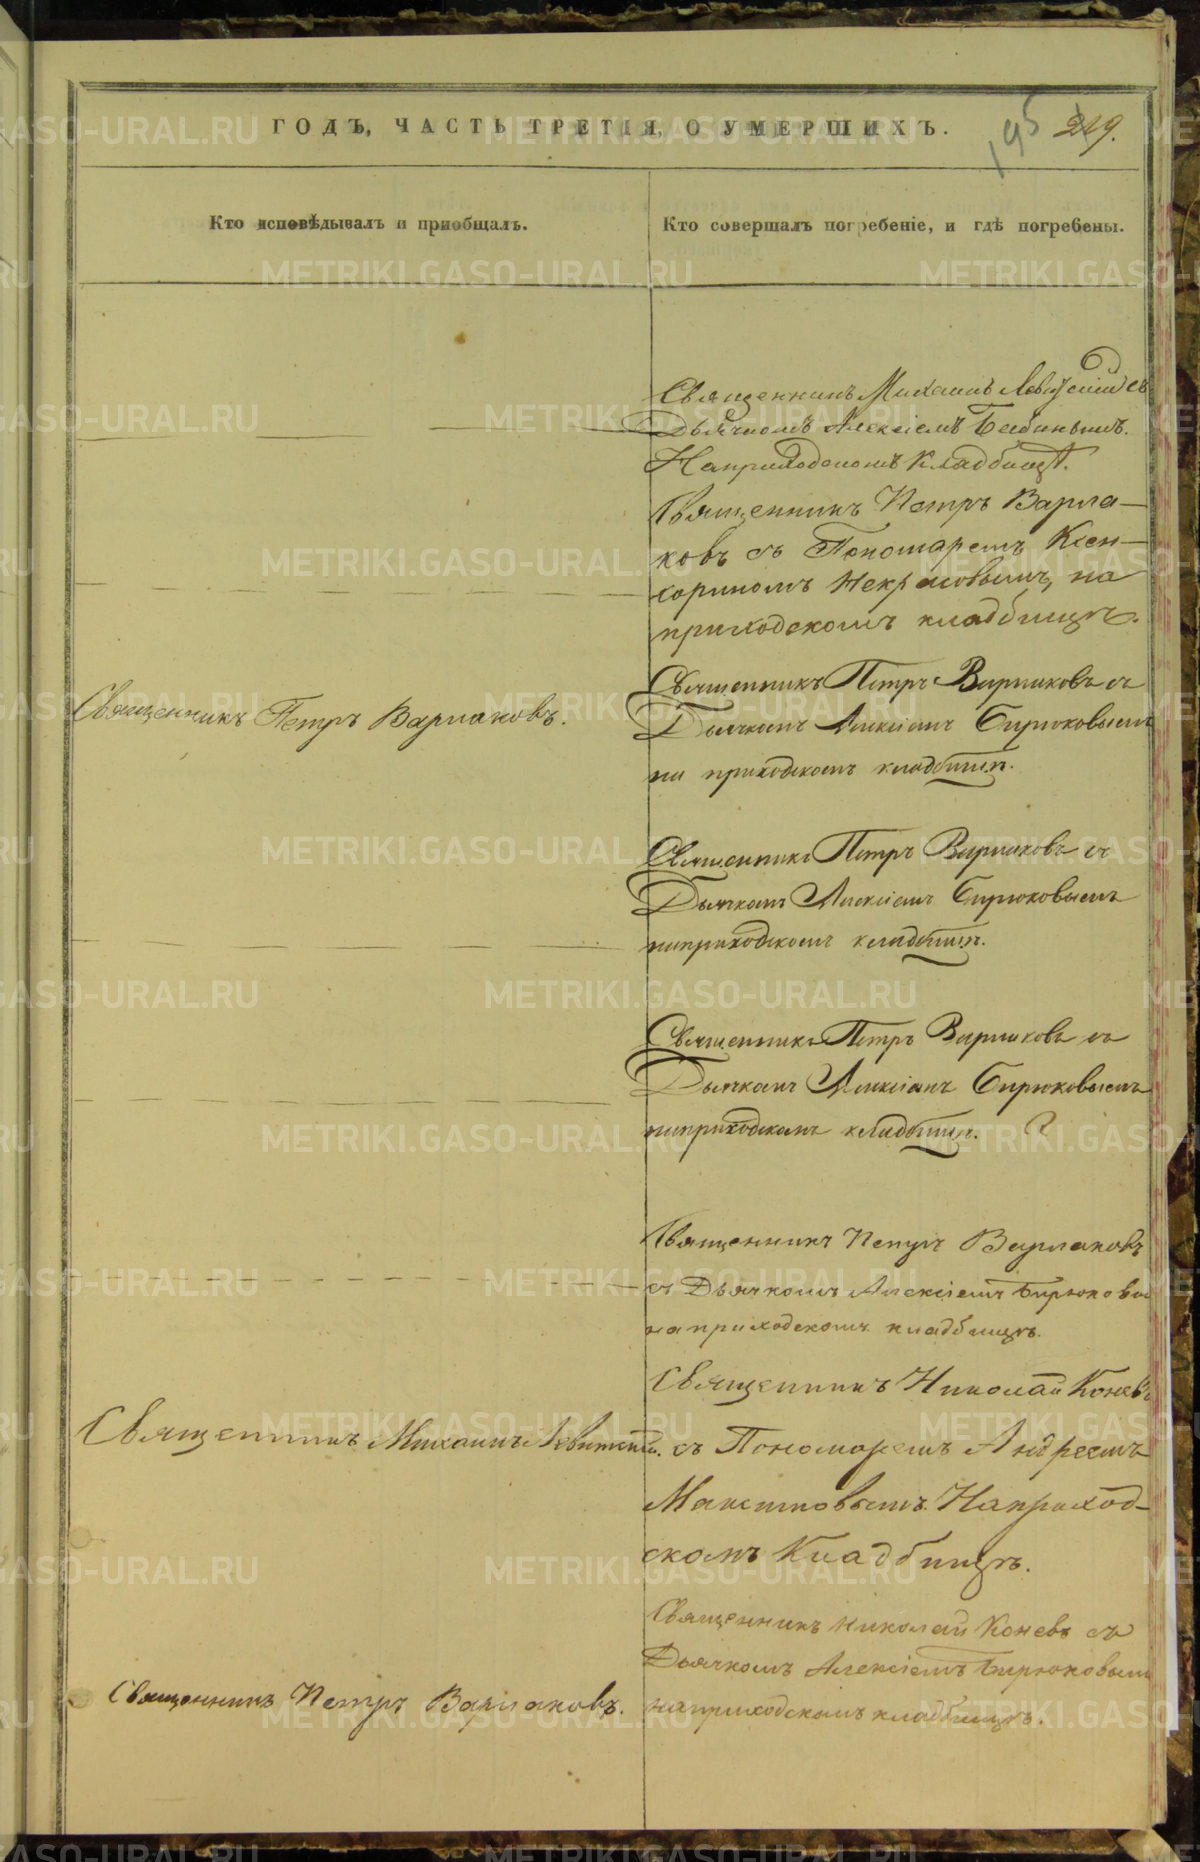 ГОДЪ, ЧАСТЬ ТРЕТІЯ, О УМЕРШИХЪ.
195 219.
Кто исповѣдывалъ и приобщалъ.
Кто совершалъ погребеніе, и гдѣ погребены.
Священникъ Михаилъ Левитскій съ
Дьячкомъ Алексіемъ
На приходскомъ Кладбищѣ.
Священникъ Петръ Варла-
ковъ съ Пономаремъ Ксен-
Некрасовымъ, на
приходскомъ кладбищѣ.
Священникъ Петръ Варлаковъ.
Священникъ Петръ Варлаковъ съ
Дьячкомъ Алексіемъ Бирюковымъ
на приходскомъ кладбищѣ.
Священникъ Петръ Варлаковъ съ
Дьячкомъ Алексіемъ Бирюковымъ
на приходскомъ кладбищѣ.
Священникъ Петръ Варлаковъ съ
Дьячкомъ Алексіемъ Бирюковымъ
на приходскомъ кладбищѣ.
Священникъ Петръ Варлаковъ
съ Дьячкомъ Алексіемъ Бирюковы
на приходскомъ кладбищѣ.
Священникъ Николай Коневъ
Священникъ Михаилъ Левитскій.
съ Пономаремъ Андреемъ
На приход-
скомъ Кладбищѣ.
Священникъ Николай Коневъ съ
Дьячкомъ Алексіемъ Бирюковымъ
Священникъ Петръ Варлаковъ.
на приходскомъ кладбищѣ.
METRIKI.GASO-URAL.RU